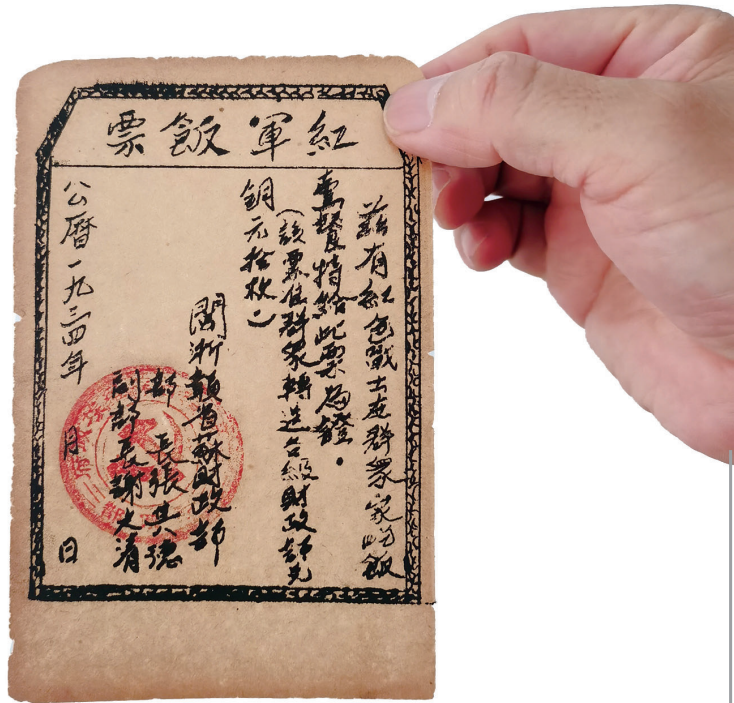 紅軍飯票
茲有紅色戰士在群眾家吃飯
壹餐特給此票為證。
(該票 群眾轉送各級財政部兌
銅元拾枚)
閩浙贛省蘇財政部
部 長張其德
副部長謝文清
公曆一九三四年 月 日